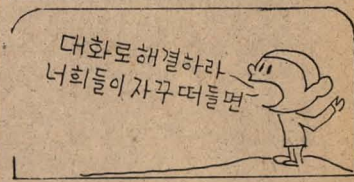 대화로해결하라
너희들이자꾸떠들면